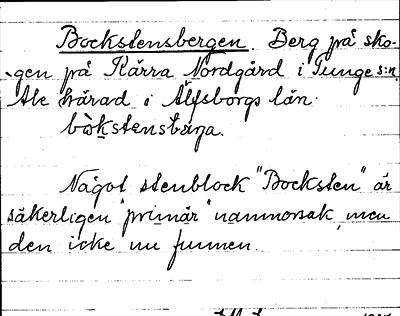 Bockstensbergen. Berg på sko-
gen på Kärra Nordgård i Tunge s:n,
Ale härad i Älfsborgs län.
Något stenblock "Bocksten" är
säkerligen "primär" namnorsak, men
den icke nu funnen.